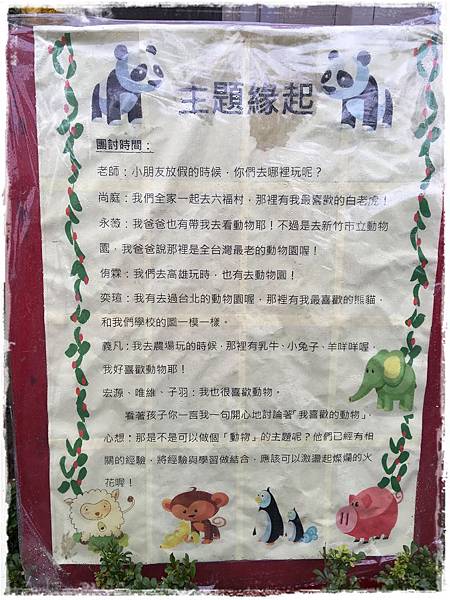 主題緣起
團討時間：
老師：小朋友放假的時候，你們去哪裡玩呢？
尚庭：我們全家一起去六福村，那裡有我最喜歡的白老虎！
永薇：我爸爸也有帶我去看動物耶！不過是去新竹市立動物
園，我爸爸說那裡是全台灣最老的動物園喔！
侑霖：我們去高雄玩時，也有去動物園！
奕瑄：我有去過台北的動物園喔，那裡有我最喜歡的熊貓，
和我們學校的圖一模一樣。
義凡：我去農場玩的時候，那裡有乳牛、小兔子、羊咩咩喔，
我好喜歡動物耶！
宏源、唯維、子羽：我也很喜歡動物。
看著孩子你一言我一句開心地討論著「我喜歡的動物」，
心想：那是不是可以做個「動物」的主題呢？他們已經有相
關的經驗，將經驗與學習做結合，應該可以激盪起燦爛的火
花喔！